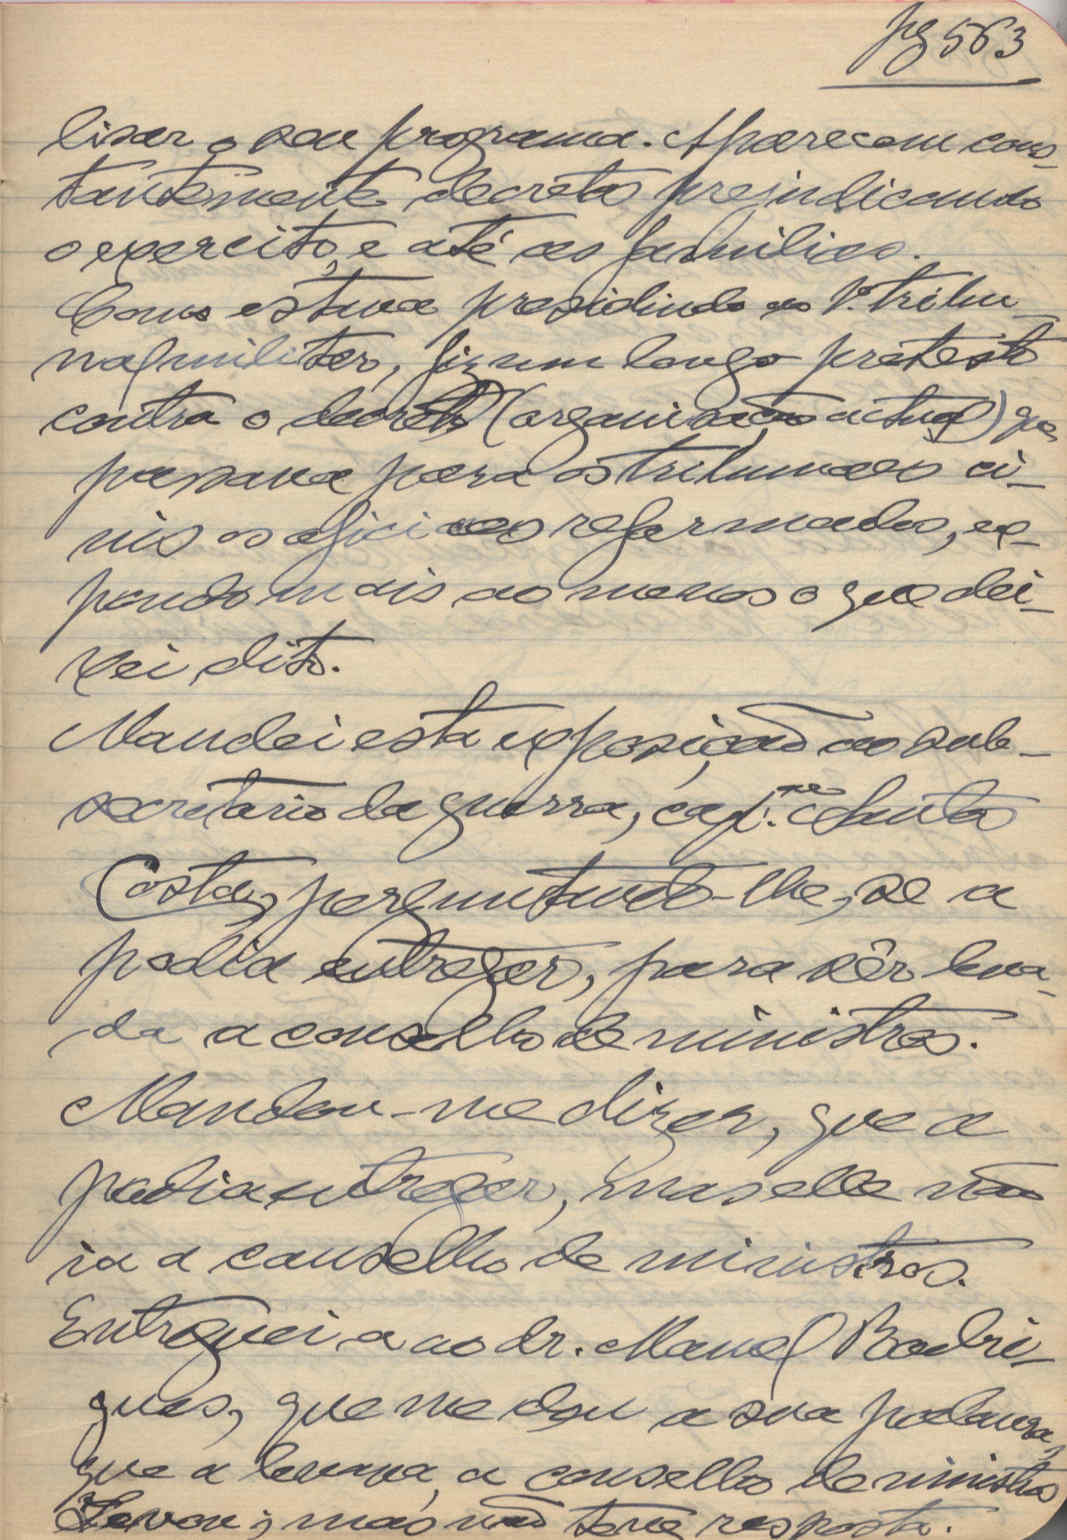 pg 563
lisar o seu programa. Aparecem cons-
tantemente decretos prejudicando
o exercito, e até as familias.
Como estava presidindo ao 1º tribu-
nal militar, fiz um longo protesto
contra o decreto (organisação actual) que
passava para os tribunaes ci-
vis os oficiaes reformados, ex-
pondo mais ao menos o que dei-
xei dito.
Mandei esta exposição ao sub-
secretario da guerra, cap. Santos
Costa, perguntando-lhe, se a
podia entregar, para sêr leva-
da a conselho de ministros.
Mandou-me dizer, que a
podia entregar, mas elle não
ia a conselho de ministros.
Entreguei a ao dr. Manuel Rodri-
gues, que me deu a sua palavra,
que a levava a conselho de ministros
Levou; mas não teve resposta.